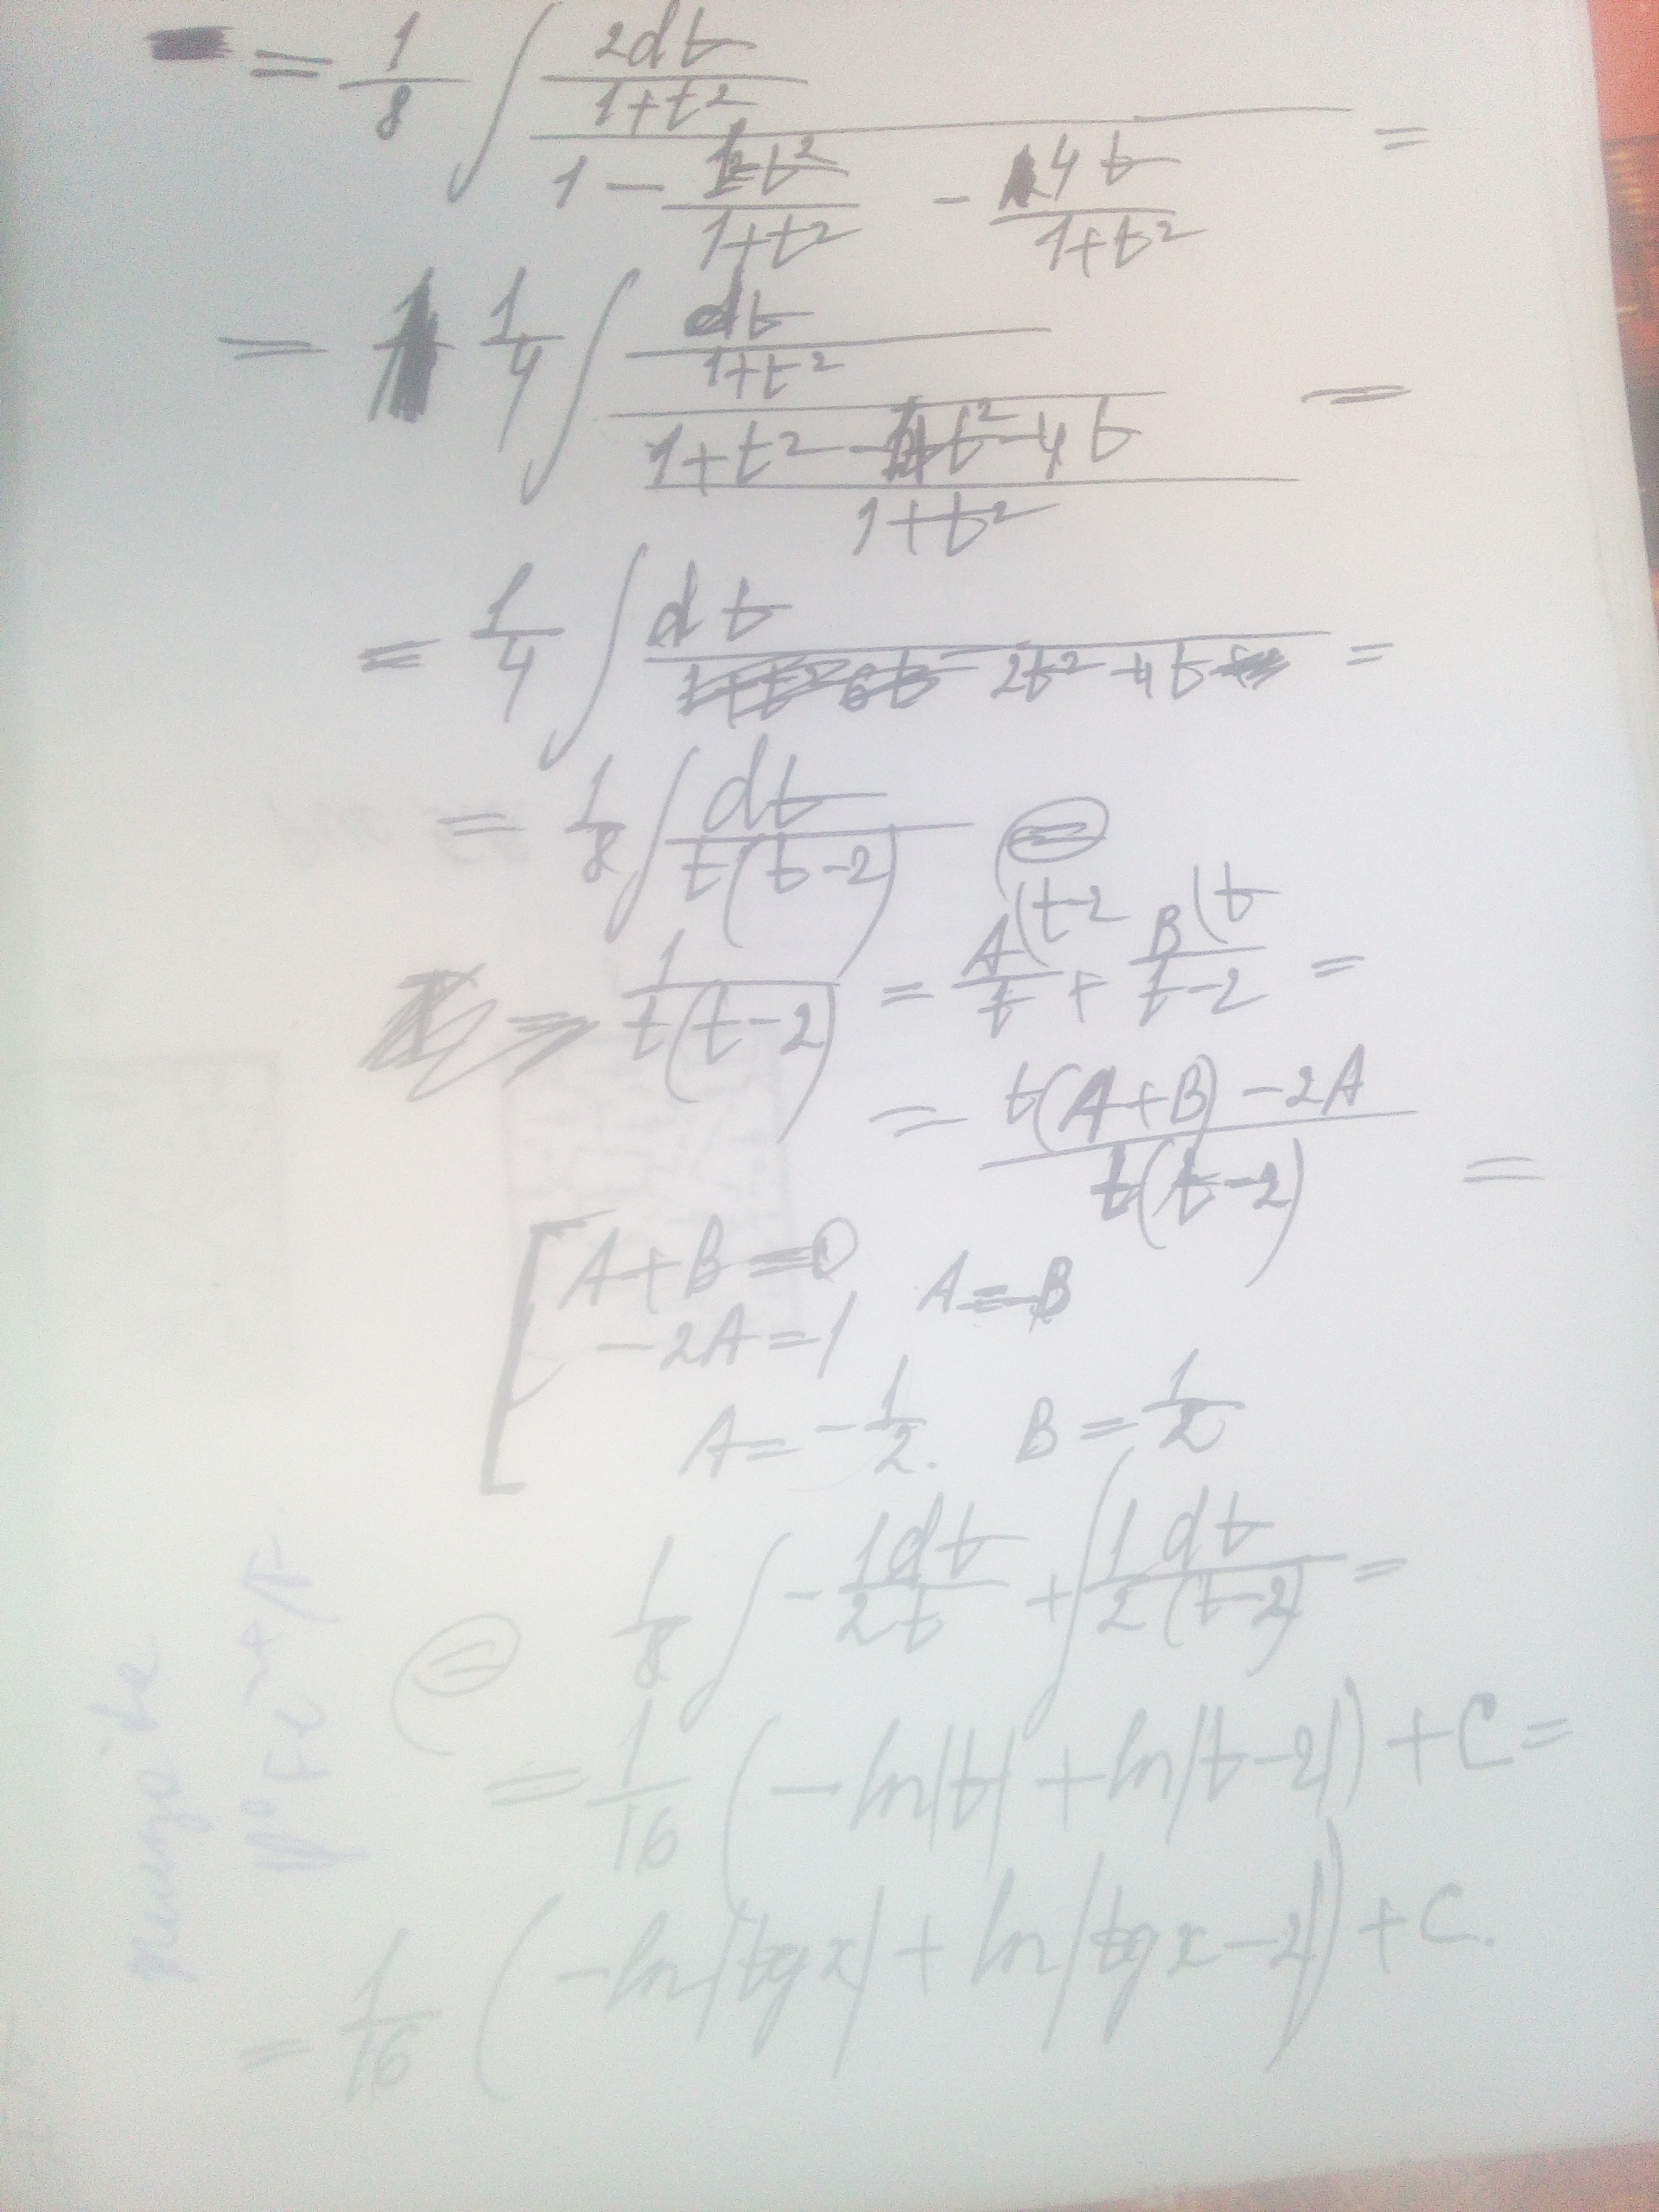 = 1/8 ∫ (2dt/(1+t²)) / (1 - (1-t²)/(1+t²) - 4t/(1+t²)) =
= 1/4 ∫ (dt/(1+t²)) / ((1+t² - 1+t² - 4t)/(1+t²)) =
= 1/4 ∫ dt/(2t² - 4t) =
= 1/8 ∫ dt/(t(t-2)) =
1/(t(t-2)) = A(t-2/t + B(t/t-2 =
= (t(A+B) - 2A)/(t(t-2)) =
[ A+B=0 A=-B
-2A=1
A=-1/2. B=1/2
= 1/8 ∫ -1dt/2t + ∫ 1dt/2(t-2) =
= 1/16 (-ln|t| + ln|t-2|) + C =
= 1/16 (-ln|tgx| + ln|tgx-2|) + C.